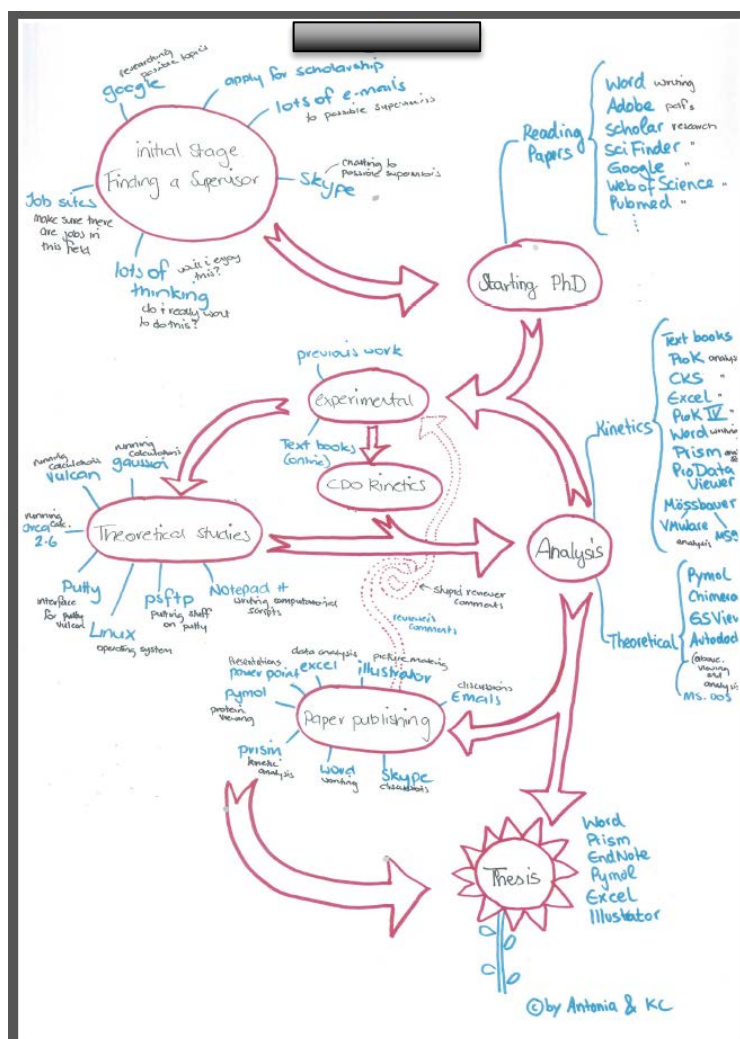 researching
possible topics
google
apply for scholarship
lots of e-mails
to possible supervisors
initial stage
Finding a Supervisor
Skype
chatting to
possible supervisors
Job sites
make sure there
are jobs in
this field
lots of
thinking
will i enjoy
this?
do i really want
to do this?
Reading
Papers
Word writing
Adobe pdf's
Scholar research
SciFinder "
Google "
Web of Science "
Pubmed "
Starting PhD
previous work
experimental
Text books
(online)
CDO kinetics
running
calculations
vulcan
running
calculations
gaussian
running
calc.
orca
2.6
Theoretical studies
Putty
interface
for putty
vulcan
Linux
operating system
psftp
putting stuff
on putty
Notepad ++
writing computational
scripts
Analysis
Kinetics
Text books
ProK analysis
CKS "
Excel "
ProK IV "
Word writing
Prism
ProData
Viewer
Mössbauer
VMware
analysis
Theoretical
Pymol
Chimera
GSView
Autodock
(above
viewing
and
analysis)
MS-DOS
stupid reviewer
comments
reviewers
comments
Presentations
power point
data analysis
excel
picture making
illustrator
discussions
Emails
pymol
protein
viewing
paper publishing
prism
kinetic
analysis
word
writing
Skype
discussions
Thesis
Word
Prism
EndNote
Pymol
Excel
Illustrator
© by Antonia & KC